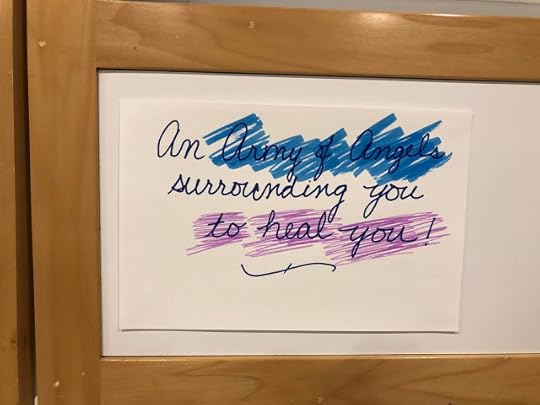 An Army of Angels
surrounding you
to heal you!